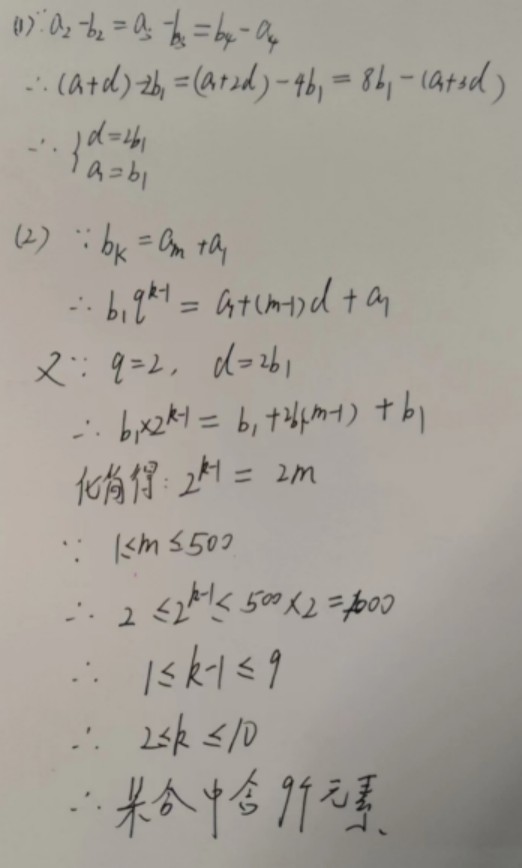 (1)∵a₂-b₂=a₃-b₃=b₄-a₄
∴(a₁+d)-2b₁=(a₁+2d)-4b₁=8b₁-(a₁+3d)
∴{d=2b₁
a₁=b₁
(2) ∵b_k=a_m+a₁
∴b₁q^{k-1}=a₁+(m-1)d+a₁
又∵q=2, d=2b₁
∴b₁×2^{k-1}=b₁+2b₁(m-1)+b₁
化简得:2^{k-1}=2m
∵1≤m≤500
∴2≤2^{k-1}≤500×2=1000
∴1≤k-1≤9
∴2≤k≤10
∴集合中含9个元素.